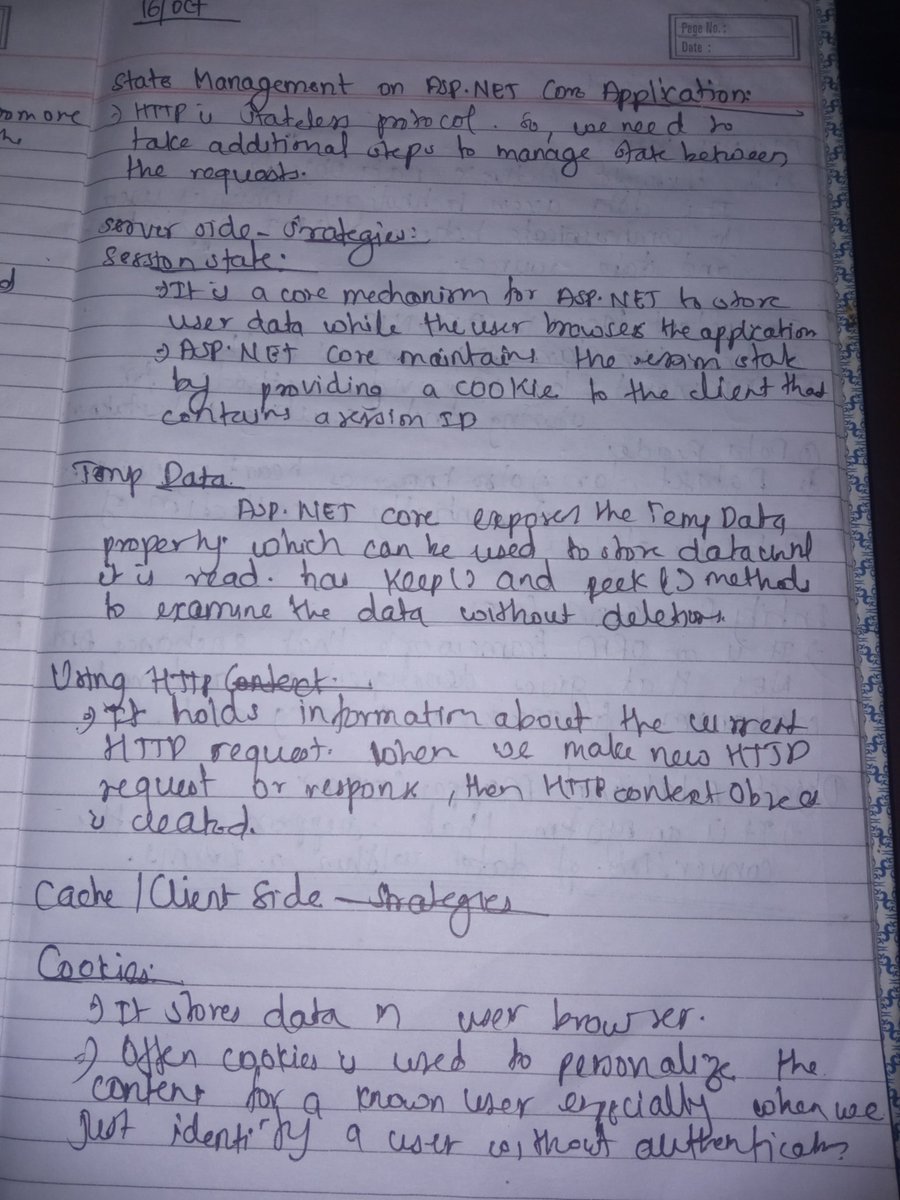 16/Oct
Page No.:
Date :
State Management on ASP.NET Core Application:
HTTP is stateless protocol. So, we need to
take additional steps to manage state between
the requests.
server side - Strategies:
Session state:
It is a core mechanism for ASP.NET to store
user data while the user browses the application
ASP.NET core maintains the session state
by providing a cookie to the client that
contains a session ID
Temp Data.
ASP.NET core exposes the Temp Data
property which can be used to store data until
it is read. has Keep() and peek() methods
to examine the data without deletion.
Using HTTP Context.
It holds information about the current
HTTP request. When we make new HTTP
request or response, then HTTP context Object
is created.
Cache / Client Side - Strategies
Cookies:
It stores data in user browser.
Often cookies is used to personalize the
content for a known user especially when we
just identify a user without authentication